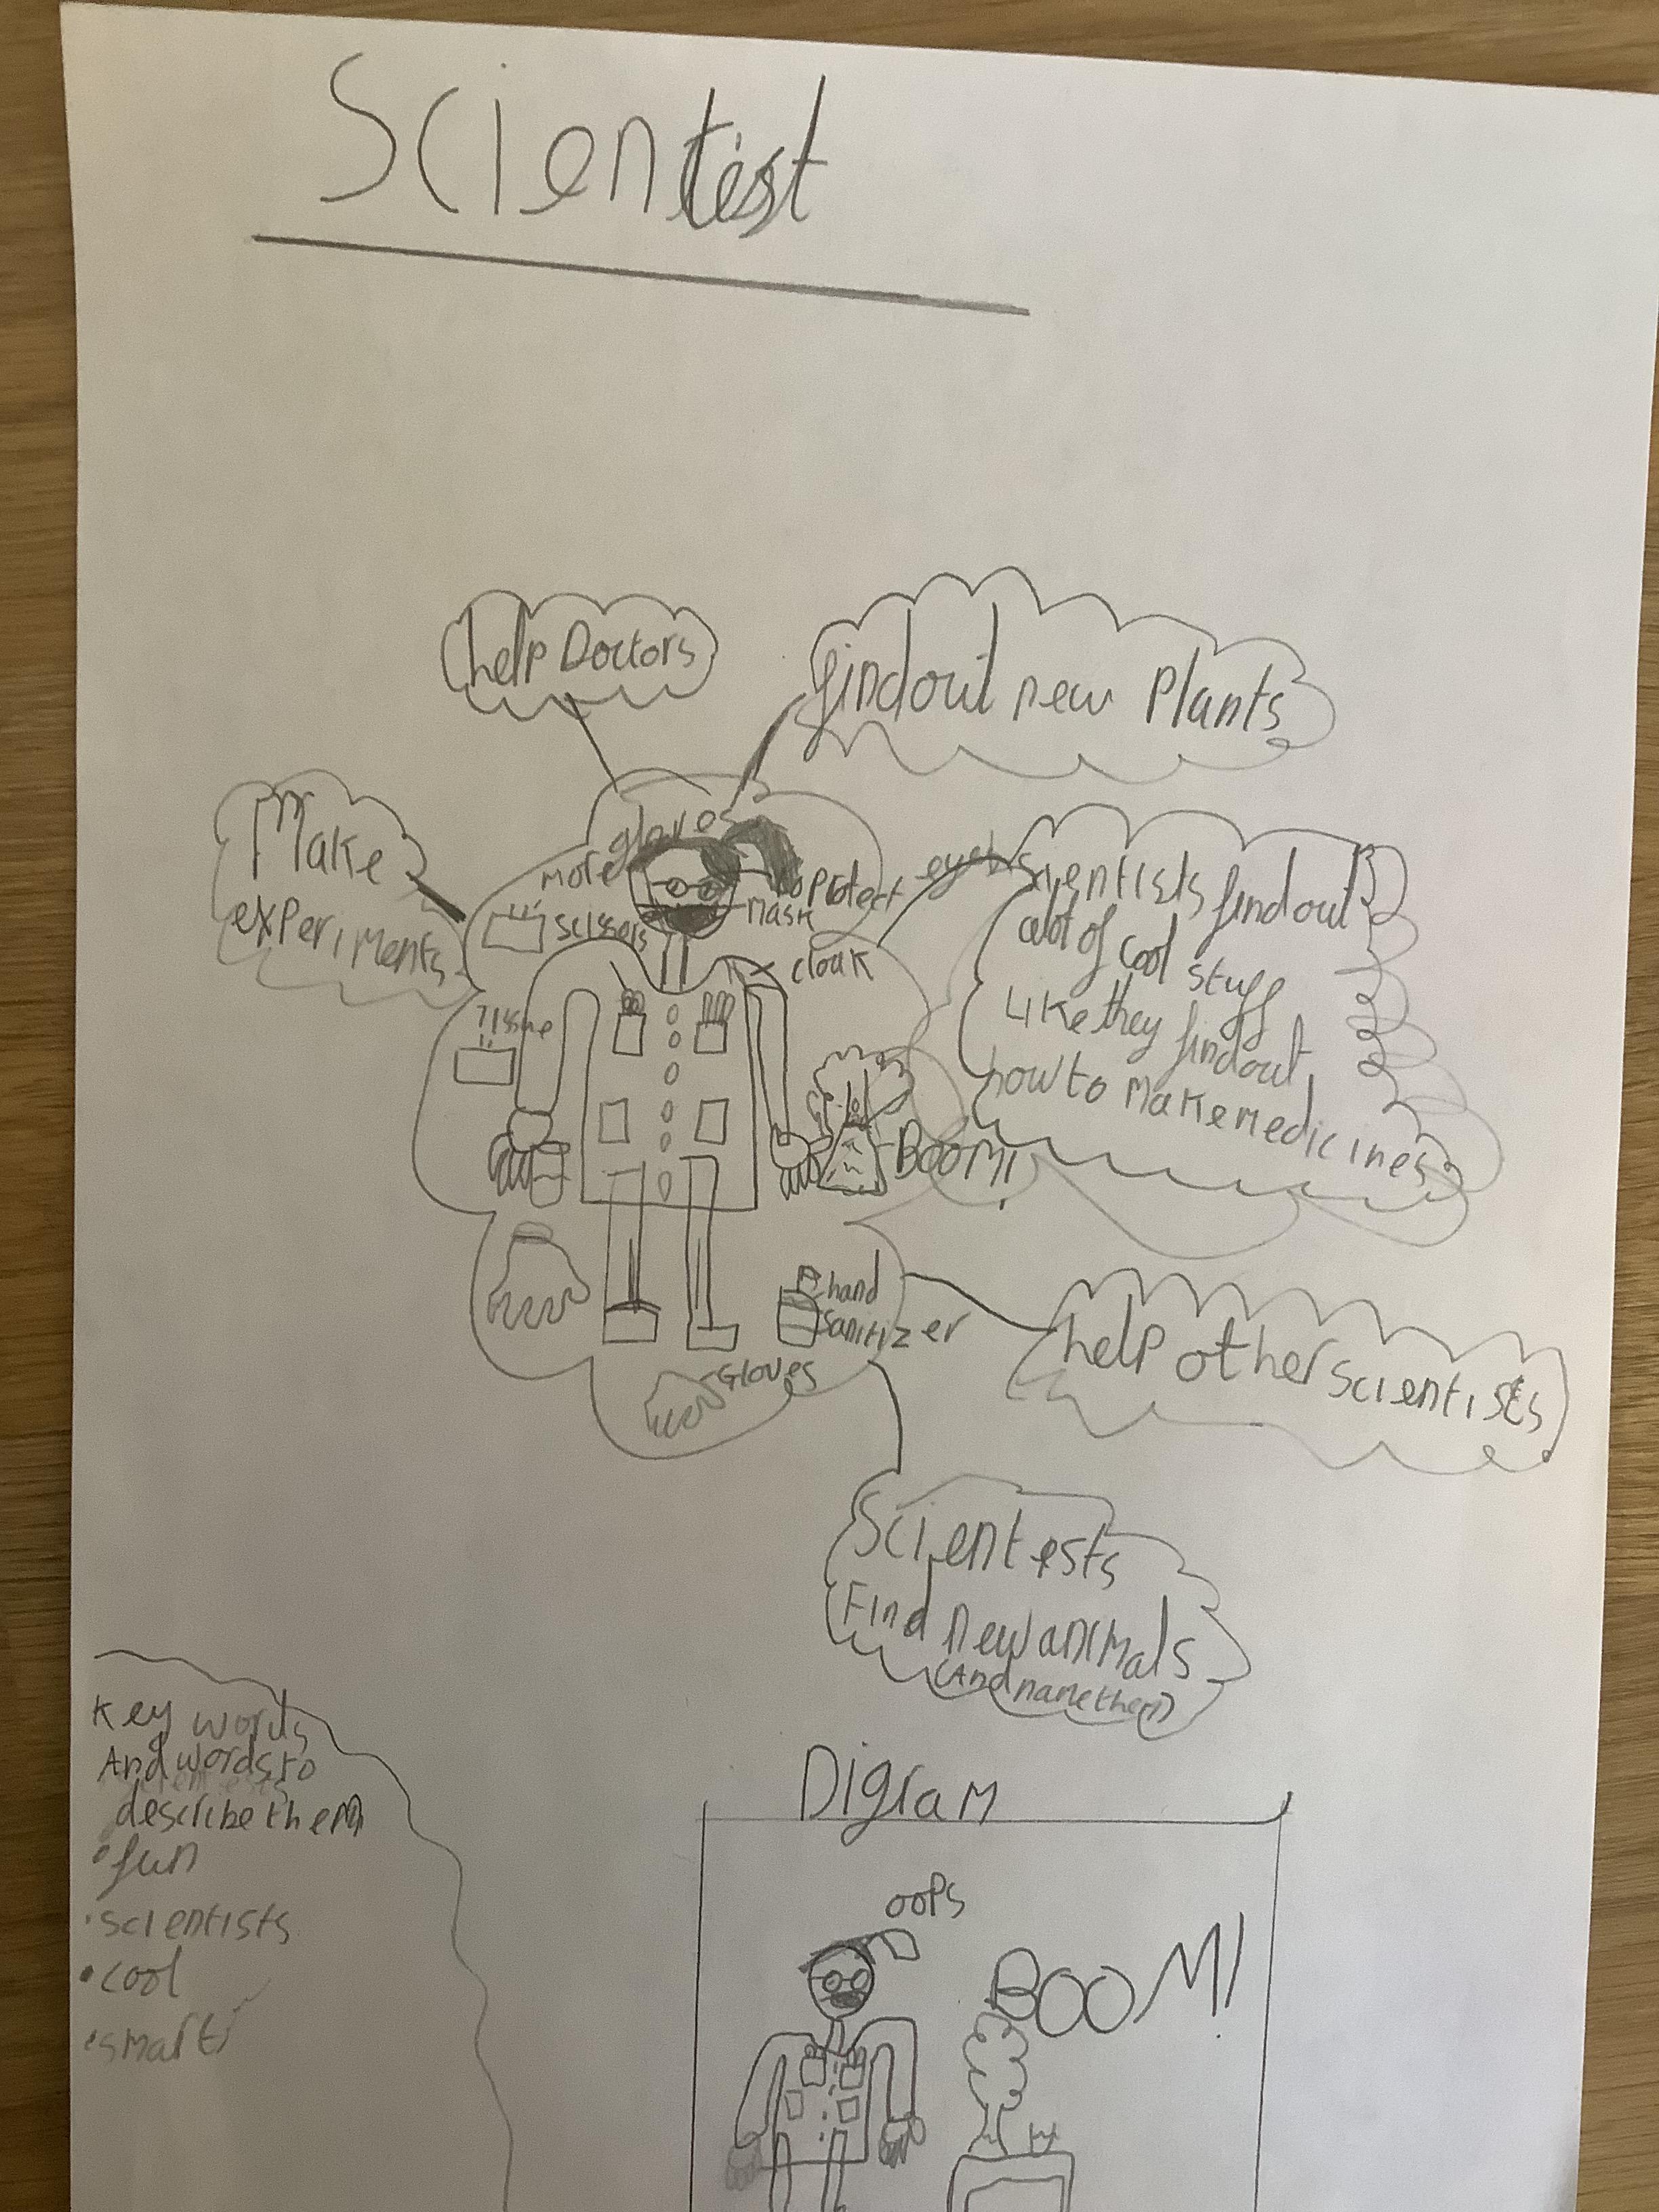 Scientist
help Doctors
findout new Plants
Make
experiments
more gloves
to Protect eyes
Mask
scissers
cloak
Tissue
BOOM!
scientists findout
alot of cool stuff
Like they findout
how to make medicines
hand
sanitizer
Gloves
help other scientists
Scientests
Find new animals
(And name them)
Key words
And words to
describe them
• fun
• scientists
• cool
• smart
Digram
oops
BOOM!